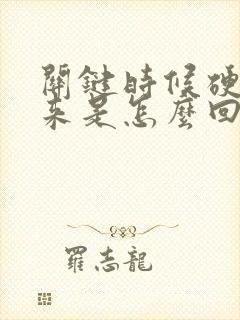 關鍵時候硬
來是怎麼回
羅志龍